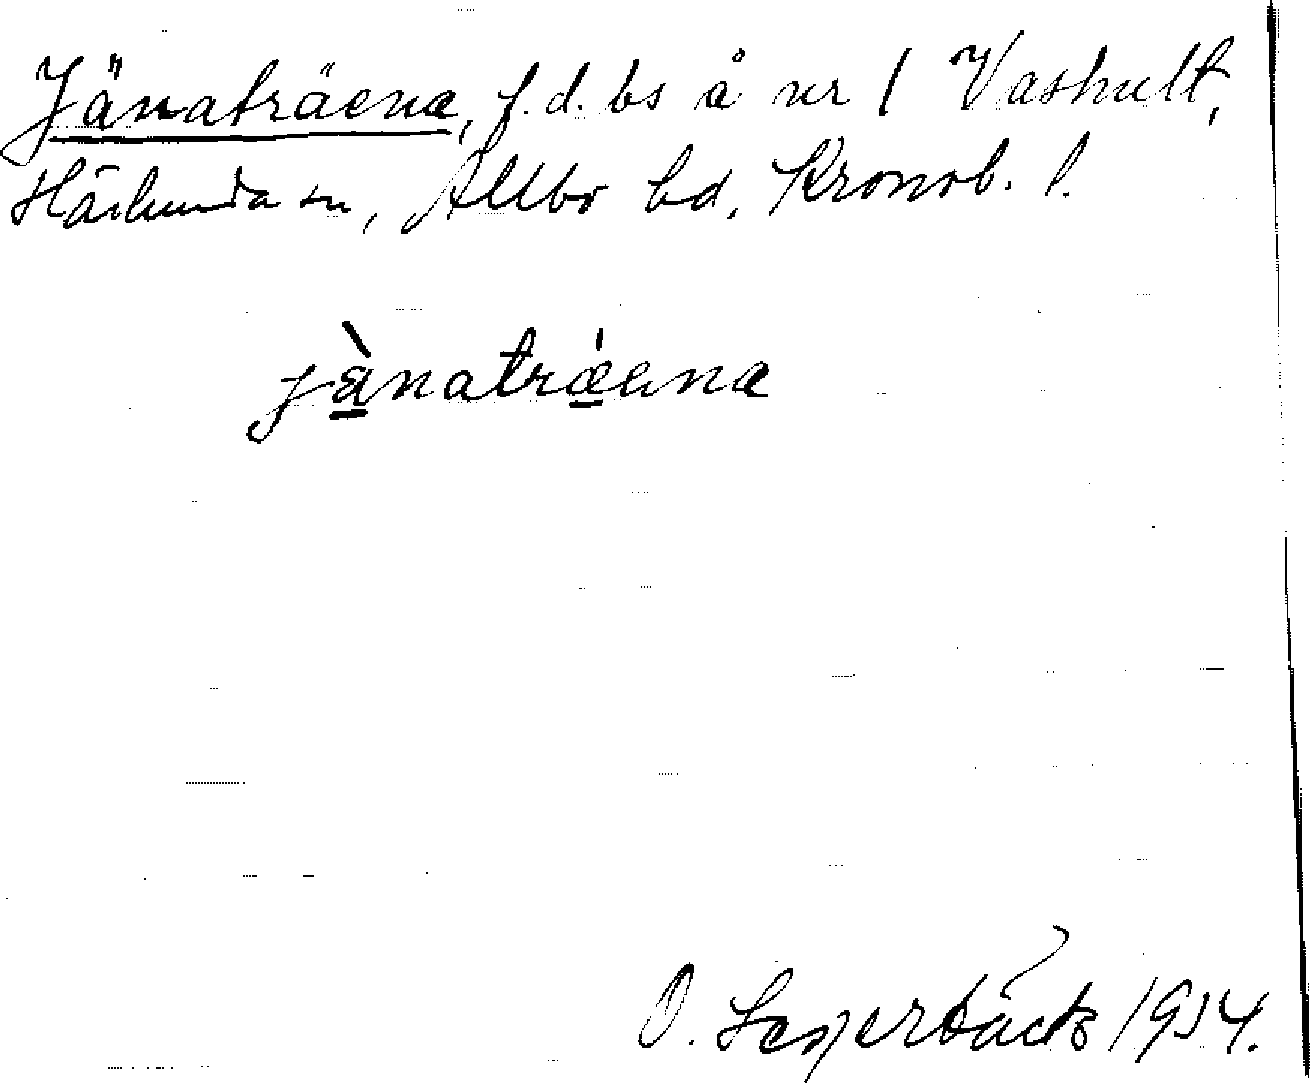 Jänaträena, f.d. bs å nr 1 Vashult,
Härlunda sn, Allbo hd, Kronob. l.
jànatræ̀ena
O. 1934.